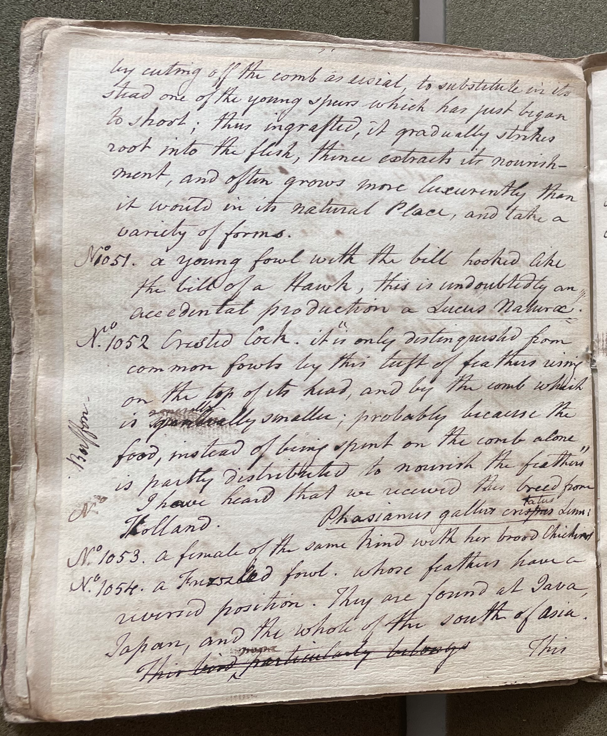 by cuting off the comb as usial, to substitute in its
stead one of the young spurs which has just began
to shoot; thus ingrafted, it gradually strikes
root into the flesh, thince extracts its nourish-
ment, and often grows more luxurently than
it would in its natural Place, and take a
variety of forms.
No 1051. a young fowl with the bill hooked like
the bill of a Hawk, this is undoubtedly an
accedental production a Lucus Naturæ.
No. 1052 Crested Cock. "it is only distinguished from
common fowls by this tuft of feathers rising
on the top of its head, and by the comb which
is smaller; probably because the
food, instead of being spent on the comb alone
is partly distributed to nourish the feathers"
Buffon.
No
I have heard that we received this breed from
Holland. Phasianus gallus cristatus Linn:
No. 1053. a female of the same kind with her brood Chickens
No. 1054. a Frizzled fowl. whose feathers have a
reversed position. They are found at Java,
Japan, and the whole of the south of Asia.
This bird particularly belongs This